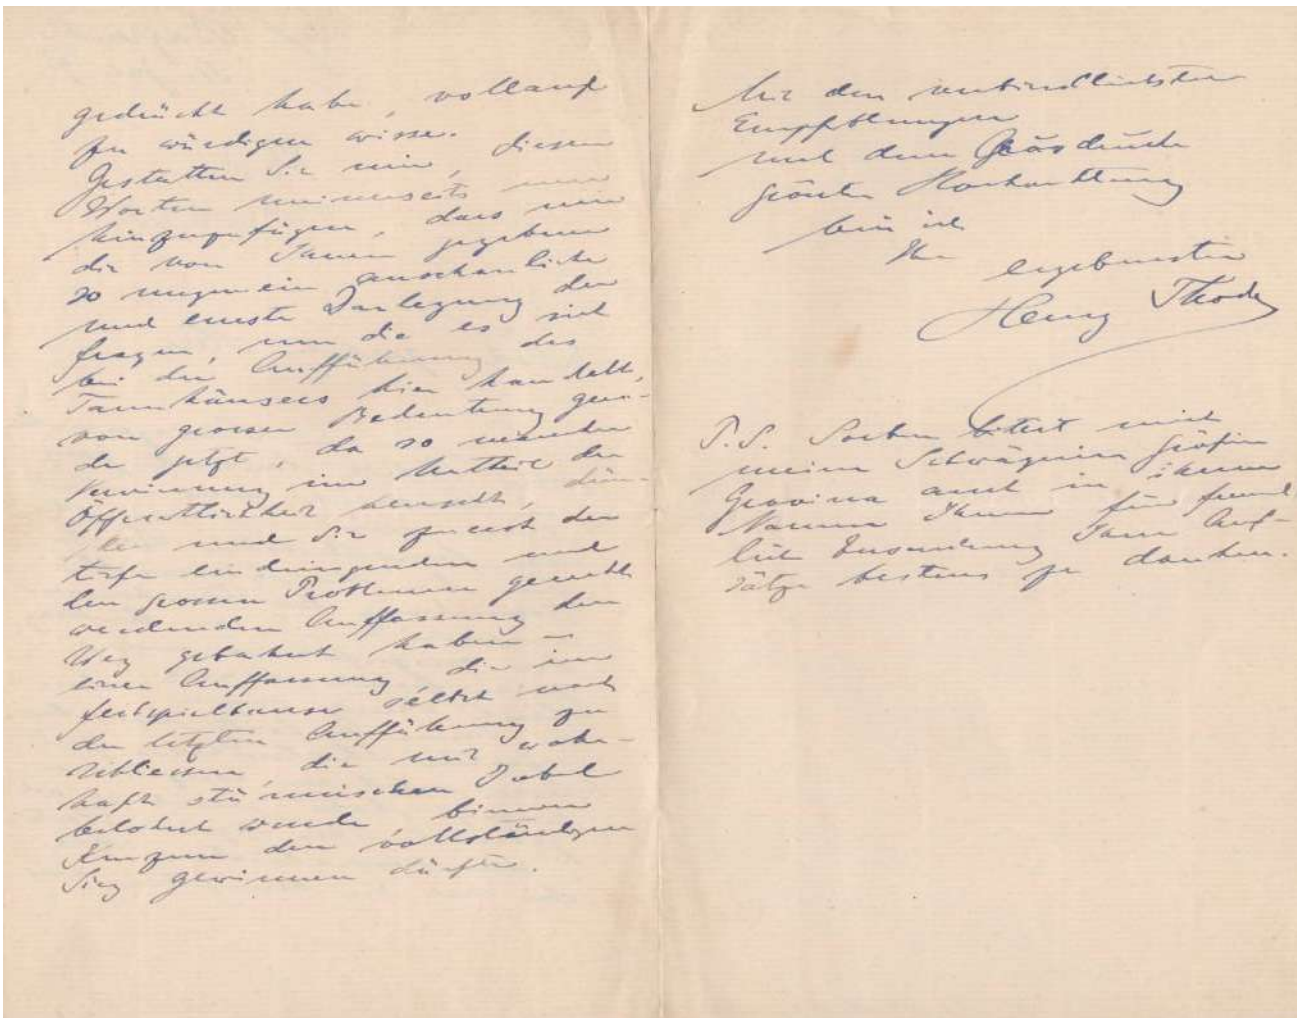 gedrückt habe, vollauf
zu würdigen wisse.
Gestatten Sie mir, diesen
Worten meinerseits nur
hinzuzufügen, dass mir
die von Ihnen gegebene
so ungemein anschauliche
und ernste Darlegung der
Fragen, um die es sich
bei der Aufführung des
Tannhäusers hier handelt,
von grosser Bedeutung
da jetzt, da so
Verwirrung im Urtheil der
Öffentlichkeit herrscht,
und Sie zuerst der
tief eindringenden und
den grossen Problemen gerecht
werdenden Auffassung den
Weg gebahnt haben –
einer Auffassung, die im
Festspielhause selbst nach
der letzten Aufführung zu
schliessen, die mit wahr-
haft stürmischem Jubel
belohnt wurde, binnen
Kurzem den vollständigen
Sieg gewinnen dürfte.
Mit den verbindlichsten
Empfehlungen
und dem Ausdrucke
Hochachtung
bin ich
Ihr
ergebenster
Henry Thode
P.S. Soeben bittet mich
meine Schwägerin Gräfin
Gravina auch in ihrem
Namen Ihnen für freund-
lich Zusendung Ihrer Auf-
sätze bestens zu danken.